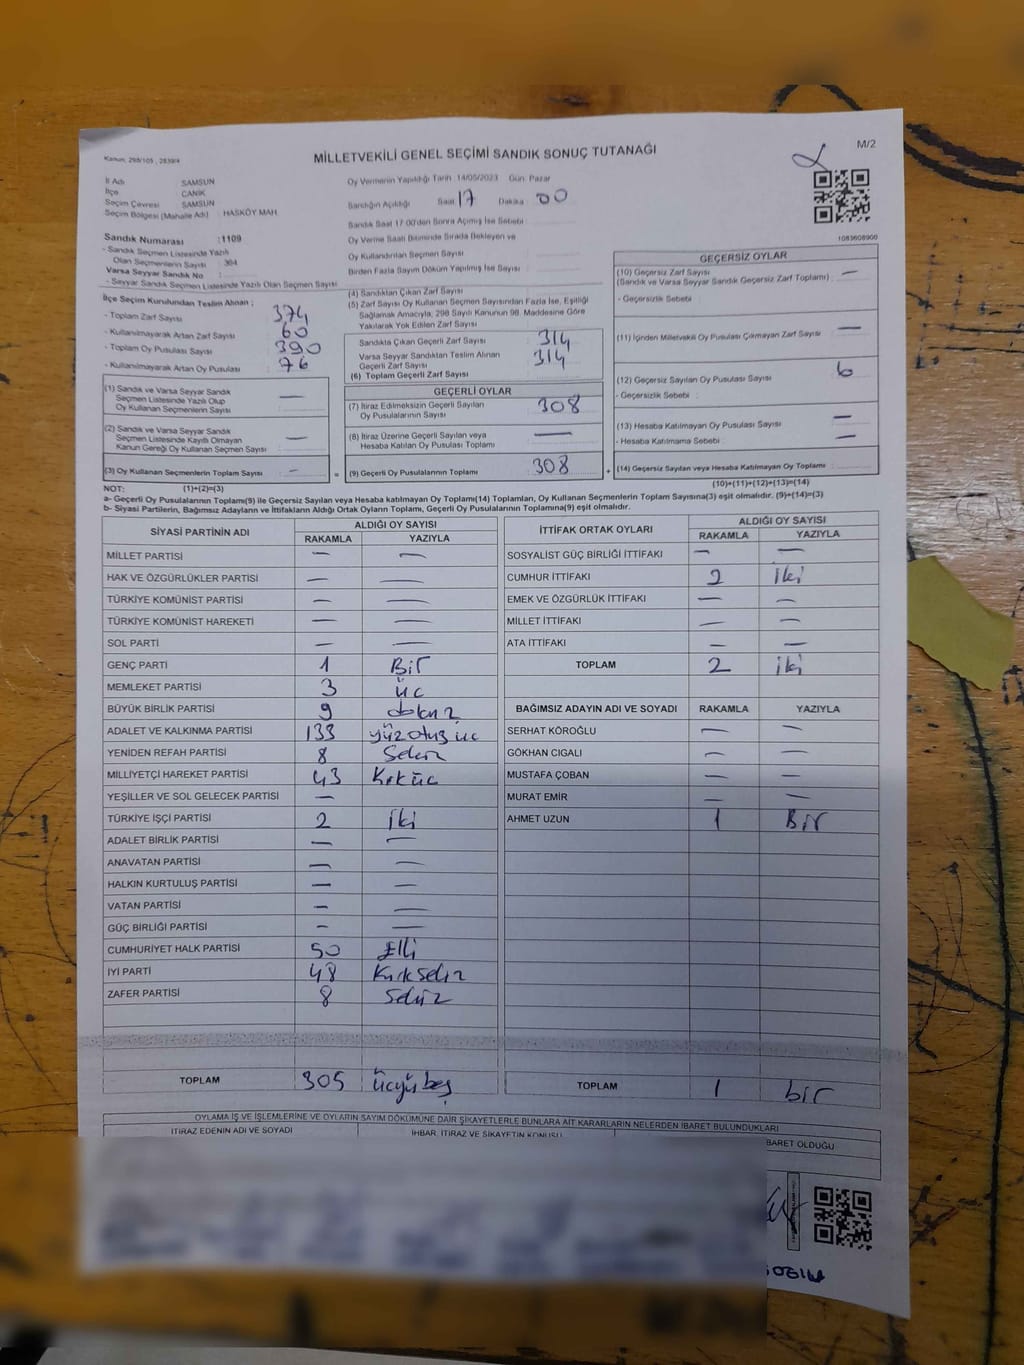 Kanun: 298/105 , 2839/4
MİLLETVEKİLİ GENEL SEÇİMİ SANDIK SONUÇ TUTANAĞI
M/2
İl Adı : SAMSUN
İlçe : CANİK
Seçim Çevresi : SAMSUN
Seçim Bölgesi (Mahalle Adı) : HASKÖY MAH.
Oy Vermenin Yapıldığı Tarih :14/05/2023 Gün: Pazar
Sandığın Açıldığı Saat 17 Dakika 00
Sandık Saat 17:00'den Sonra Açılmış İse Sebebi :
Oy Verme Saati Bitiminde Sırada Bekleyen ve
Oy Kullandırılan Seçmen Sayısı
Birden Fazla Sayım Döküm Yapılmış İse Sayısı :
1083608900
Sandık Numarası :1109
- Sandık Seçmen Listesinde Yazılı
Olan Seçmenlerin Sayısı : 364
Varsa Seyyar Sandık No :
- Seyyar Sandık Seçmen Listesinde Yazılı Olan Seçmen Sayısı
İlçe Seçim Kurulundan Teslim Alınan ;
- Toplam Zarf Sayısı : 374
- Kullanılmayarak Artan Zarf Sayısı : 60
- Toplam Oy Pusulası Sayısı : 390
- Kullanılmayarak Artan Oy Pusulası : 76
(1) Sandık ve Varsa Seyyar Sandık
Seçmen Listesinde Yazılı Olup
Oy Kullanan Seçmenlerin Sayısı : —
(2) Sandık ve Varsa Seyyar Sandık
Seçmen Listesinde Kayıtlı Olmayan
Kanun Gereği Oy Kullanan Seçmen Sayısı : —
(3) Oy Kullanan Seçmenlerin Toplam Sayısı : —
(1)+(2)=(3)
(4) Sandıktan Çıkan Zarf Sayısı
(5) Zarf Sayısı Oy Kullanan Seçmen Sayısından Fazla İse, Eşitliği
Sağlamak Amacıyla, 298 Sayılı Kanunun 98. Maddesine Göre
Yakılarak Yok Edilen Zarf Sayısı :
Sandıkta Çıkan Geçerli Zarf Sayısı : 314
Varsa Seyyar Sandıktan Teslim Alınan
Geçerli Zarf Sayısı : 314
(6) Toplam Geçerli Zarf Sayısı :
GEÇERLİ OYLAR
(7) İtiraz Edilmeksizin Geçerli Sayılan
Oy Pusulalarının Sayısı : 308
(8) İtiraz Üzerine Geçerli Sayılan veya
Hesaba Katılan Oy Pusulaları Toplamı : —
= (9) Geçerli Oy Pusulalarının Toplamı : 308 +
GEÇERSİZ OYLAR
(10) Geçersiz Zarf Sayısı : —
(Sandık ve Varsa Seyyar Sandık Geçersiz Zarf Toplamı)
- Geçersizlik Sebebi :
(11) İçinden Milletvekili Oy Pusulası Çıkmayan Zarf Sayısı : —
(12) Geçersiz Sayılan Oy Pusulası Sayısı : 6
- Geçersizlik Sebebi :
(13) Hesaba Katılmayan Oy Pusulası Sayısı : —
- Hesaba Katılmama Sebebi : —
(14) Geçersiz Sayılan veya Hesaba Katılmayan Oy Toplamı :
(10)+(11)+(12)+(13)=(14)
NOT:
a- Geçerli Oy Pusulalarının Toplamı(9) ile Geçersiz Sayılan veya Hesaba katılmayan Oy Toplamı(14) Toplamları, Oy Kullanan Seçmenlerin Toplam Sayısına(3) eşit olmalıdır. (9)+(14)=(3)
b- Siyasi Partilerin, Bağımsız Adayların ve İttifakların Aldığı Ortak Oyların Toplamı, Geçerli Oy Pusulalarının Toplamına(9) eşit olmalıdır.
SİYASİ PARTİNİN ADI ALDIĞI OY SAYISI
RAKAMLA YAZIYLA
MİLLET PARTİSİ — —
HAK VE ÖZGÜRLÜKLER PARTİSİ — —
TÜRKİYE KOMÜNİST PARTİSİ — —
TÜRKİYE KOMÜNİST HAREKETİ — —
SOL PARTİ — —
GENÇ PARTİ 1 Bir
MEMLEKET PARTİSİ 3 üc
BÜYÜK BİRLİK PARTİSİ 9 dokuz
ADALET VE KALKINMA PARTİSİ 133 yüzotuz üc
YENİDEN REFAH PARTİSİ 8 Sekiz
MİLLİYETÇİ HAREKET PARTİSİ 43 Kırküc
YEŞİLLER VE SOL GELECEK PARTİSİ —
TÜRKİYE İŞÇİ PARTİSİ 2 İki
ADALET BİRLİK PARTİSİ — —
ANAVATAN PARTİSİ — —
HALKIN KURTULUŞ PARTİSİ — —
VATAN PARTİSİ — —
GÜÇ BİRLİĞİ PARTİSİ — —
CUMHURİYET HALK PARTİSİ 50 Elli
İYİ PARTİ 48 Kırksekiz
ZAFER PARTİSİ 8 Sekiz
TOPLAM 305 üçyüzbeş
İTTİFAK ORTAK OYLARI ALDIĞI OY SAYISI
RAKAMLA YAZIYLA
SOSYALİST GÜÇ BİRLİĞİ İTTİFAKI — —
CUMHUR İTTİFAKI 2 İki
EMEK VE ÖZGÜRLÜK İTTİFAKI — —
MİLLET İTTİFAKI — —
ATA İTTİFAKI — —
TOPLAM 2 iki
BAĞIMSIZ ADAYIN ADI VE SOYADI RAKAMLA YAZIYLA
SERHAT KÖROĞLU — —
GÖKHAN CIGALI — —
MUSTAFA ÇOBAN — —
MURAT EMİR — —
AHMET UZUN 1 Bir
TOPLAM 1 bir
OYLAMA İŞ VE İŞLEMLERİNE VE OYLARIN SAYIM DÖKÜMÜNE DAİR ŞİKAYETLERLE BUNLARA AİT KARARLARIN NELERDEN İBARET BULUNDUKLARI
İTİRAZ EDENİN ADI VE SOYADI İHBAR, İTİRAZ VE ŞİKAYETİN KONUSU BARET OLDUĞU